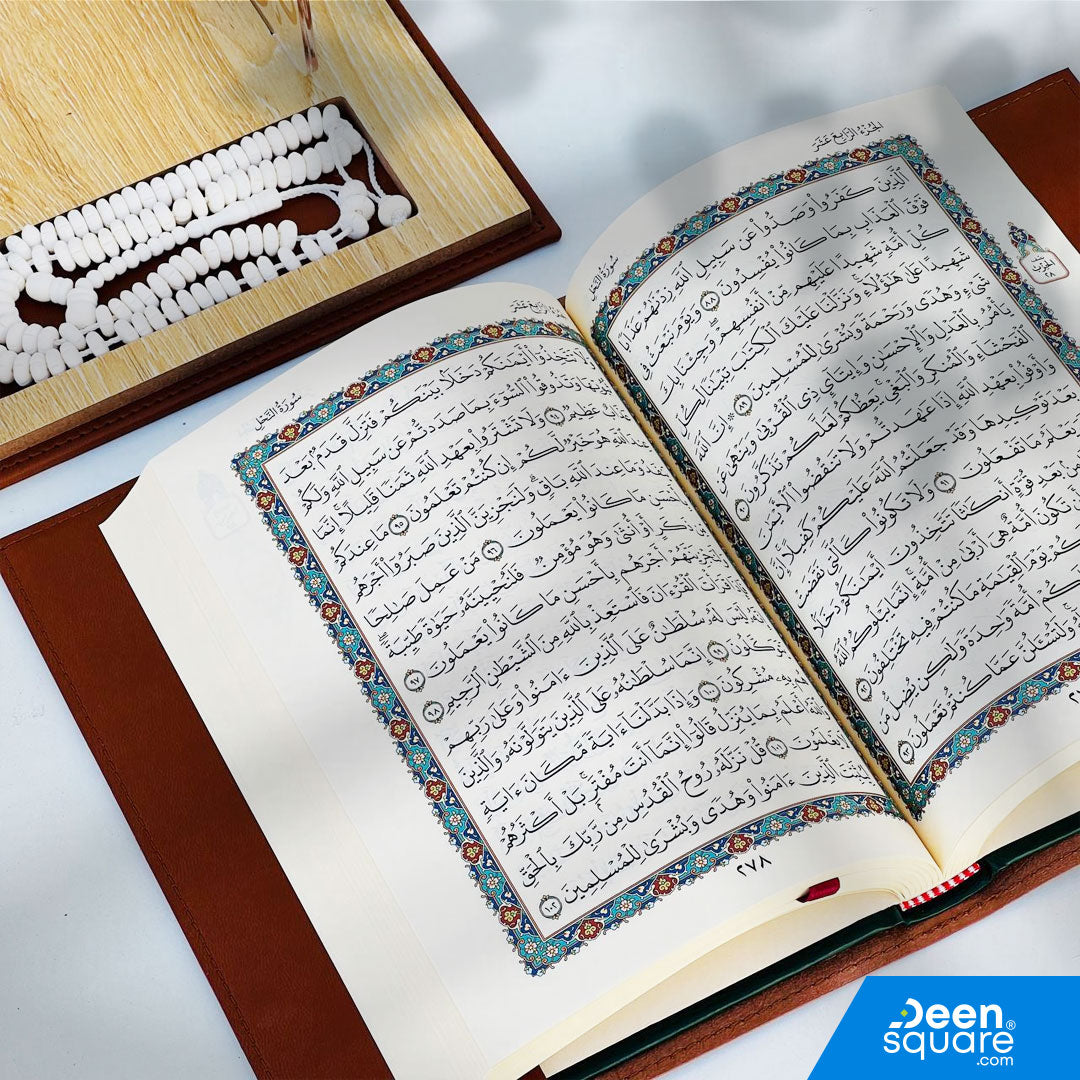 الجزء الرابع عشر
سورة النحل
الَّذِينَ كَفَرُوا وَصَدُّوا عَن سَبِيلِ اللَّهِ زِدْنَٰهُمْ عَذَابًا
فَوْقَ الْعَذَابِ بِمَا كَانُوا يُفْسِدُونَ ٨٨ وَيَوْمَ نَبْعَثُ فِي
كُلِّ أُمَّةٍ شَهِيدًا عَلَيْهِم مِّنْ أَنفُسِهِمْ وَجِئْنَا بِكَ
شَهِيدًا عَلَىٰ هَٰؤُلَاءِ وَنَزَّلْنَا عَلَيْكَ الْكِتَٰبَ تِبْيَٰنًا لِّكُلِّ
شَيْءٍ وَهُدًى وَرَحْمَةً وَبُشْرَىٰ لِلْمُسْلِمِينَ ٨٩ إِنَّ اللَّهَ
يَأْمُرُ بِالْعَدْلِ وَالْإِحْسَٰنِ وَإِيتَايِٕ ذِي الْقُرْبَىٰ وَيَنْهَىٰ عَنِ
الْفَحْشَاءِ وَالْمُنكَرِ وَالْبَغْيِ يَعِظُكُمْ لَعَلَّكُمْ تَذَكَّرُونَ ٩٠
وَأَوْفُوا بِعَهْدِ اللَّهِ إِذَا عَٰهَدتُّمْ وَلَا تَنقُضُوا الْأَيْمَٰنَ
بَعْدَ تَوْكِيدِهَا وَقَدْ جَعَلْتُمُ اللَّهَ عَلَيْكُمْ كَفِيلًا إِنَّ اللَّهَ
مَا تَفْعَلُونَ ٩١ وَلَا تَكُونُوا كَالَّتِي نَقَضَتْ
بَعْدِ قُوَّةٍ أَنكَٰثًا تَتَّخِذُونَ أَيْمَٰنَكُمْ دَخَلًا
أَن تَكُونَ أُمَّةٌ هِيَ أَرْبَىٰ مِنْ أُمَّةٍ إِنَّمَا يَبْلُوكُمُ اللَّهُ
يَوْمَ الْقِيَٰمَةِ مَا كُنتُمْ فِيهِ تَخْتَلِفُونَ ٩٢
أُمَّةً وَٰحِدَةً وَلَٰكِن يُضِلُّ مَن
وَلَتُسْـَٔلُنَّ عَمَّا كُنتُمْ تَعْمَلُونَ ٩٣
الجزء الرابع عشر
سورة النحل
وَلَا تَتَّخِذُوا أَيْمَٰنَكُمْ دَخَلًا بَيْنَكُمْ فَتَزِلَّ قَدَمٌ بَعْدَ
ثُبُوتِهَا وَتَذُوقُوا السُّوءَ بِمَا صَدَدتُّمْ عَن سَبِيلِ اللَّهِ وَلَكُمْ
عَذَابٌ عَظِيمٌ ٩٤ وَلَا تَشْتَرُوا بِعَهْدِ اللَّهِ ثَمَنًا قَلِيلًا إِنَّمَا
عِندَ اللَّهِ هُوَ خَيْرٌ لَّكُمْ إِن كُنتُمْ تَعْلَمُونَ ٩٥ مَا عِندَكُمْ
يَنفَدُ وَمَا عِندَ اللَّهِ بَاقٍ وَلَنَجْزِيَنَّ الَّذِينَ صَبَرُوا أَجْرَهُم
بِأَحْسَنِ مَا كَانُوا يَعْمَلُونَ ٩٦ مَنْ عَمِلَ صَٰلِحًا
مِّن ذَكَرٍ أَوْ أُنثَىٰ وَهُوَ مُؤْمِنٌ فَلَنُحْيِيَنَّهُ حَيَوٰةً طَيِّبَةً
وَلَنَجْزِيَنَّهُمْ أَجْرَهُم بِأَحْسَنِ مَا كَانُوا يَعْمَلُونَ ٩٧
فَإِذَا قَرَأْتَ الْقُرْءَانَ فَاسْتَعِذْ بِاللَّهِ مِنَ الشَّيْطَٰنِ الرَّجِيمِ ٩٨
إِنَّهُ لَيْسَ لَهُ سُلْطَٰنٌ عَلَى الَّذِينَ ءَامَنُوا وَعَلَىٰ رَبِّهِمْ
يَتَوَكَّلُونَ ٩٩ إِنَّمَا سُلْطَٰنُهُ عَلَى الَّذِينَ يَتَوَلَّوْنَهُ وَالَّذِينَ
هُم بِهِ مُشْرِكُونَ ١٠٠ وَإِذَا بَدَّلْنَا ءَايَةً مَّكَانَ ءَايَةٍ
وَاللَّهُ أَعْلَمُ بِمَا يُنَزِّلُ قَالُوا إِنَّمَا أَنتَ مُفْتَرٍ بَلْ أَكْثَرُهُمْ
لَا يَعْلَمُونَ ١٠١ قُلْ نَزَّلَهُ رُوحُ الْقُدُسِ مِن رَّبِّكَ بِالْحَقِّ
لِيُثَبِّتَ الَّذِينَ ءَامَنُوا وَهُدًى وَبُشْرَىٰ لِلْمُسْلِمِينَ ١٠٢
٢٧٨
Deen
square®
.com